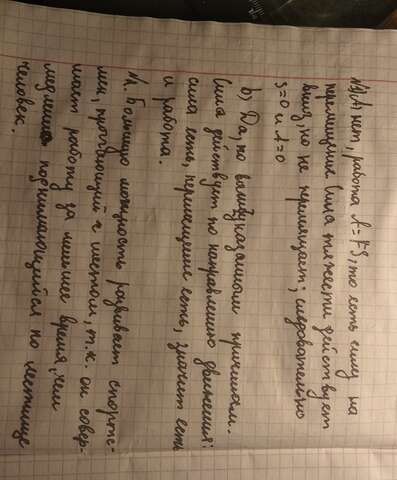 №3 А) нет, работа А=FS, то есть силу на
перемещение. Сила тяжести действует
вниз, но не перемещает; следовательно
S=0 и А=0
b) Да, по вышеуказанным причинам.
Сила действует по направлению движения:
сила есть, перемещение есть, значит есть
и работа.
№1. Большую мощность развивает спортс-
мен, прыгающий с шестом, т.к. он совер-
шает работу за меньшее время, чем
медленно поднимающийся по лестнице
человек.